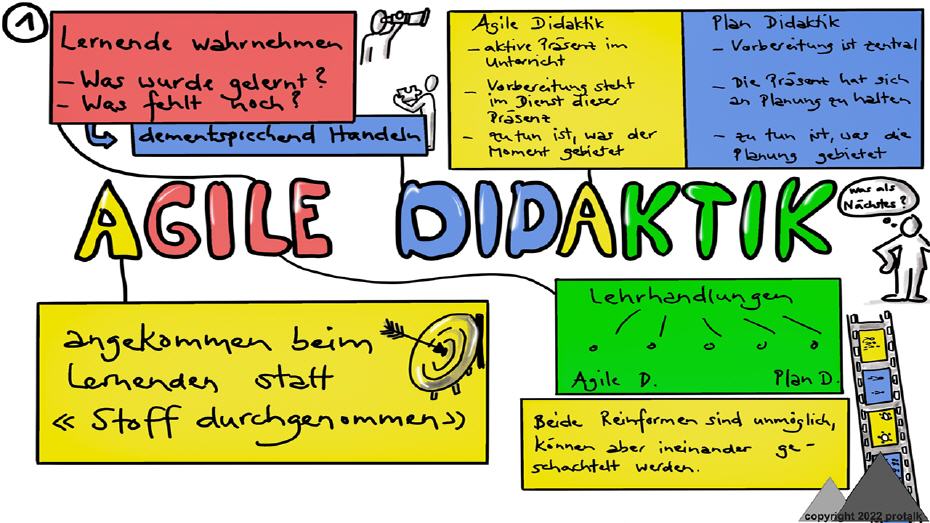 1
Lernende wahrnehmen
- Was wurde gelernt?
- Was fehlt noch?
dementsprechend Handeln
Agile Didaktik
- aktive Präsenz im
Unterricht
- Vorbereitung steht
im Dienst dieser
Präsenz
- zu tun ist, was der
Moment gebietet
Plan Didaktik
- Vorbereitung ist zentral
- Die Präsenz hat sich
an Planung zu halten
- zu tun ist, was die
Planung gebietet
AGILE DIDAKTIK
Was als
Nächstes?
angekommen beim
Lernenden statt
« Stoff durchgenommen»
Lehrhandlungen
Agile D. Plan D.
Beide Reinformen sind unmöglich,
können aber ineinander ge-
schachtelt werden.
copyright 2022 protalk